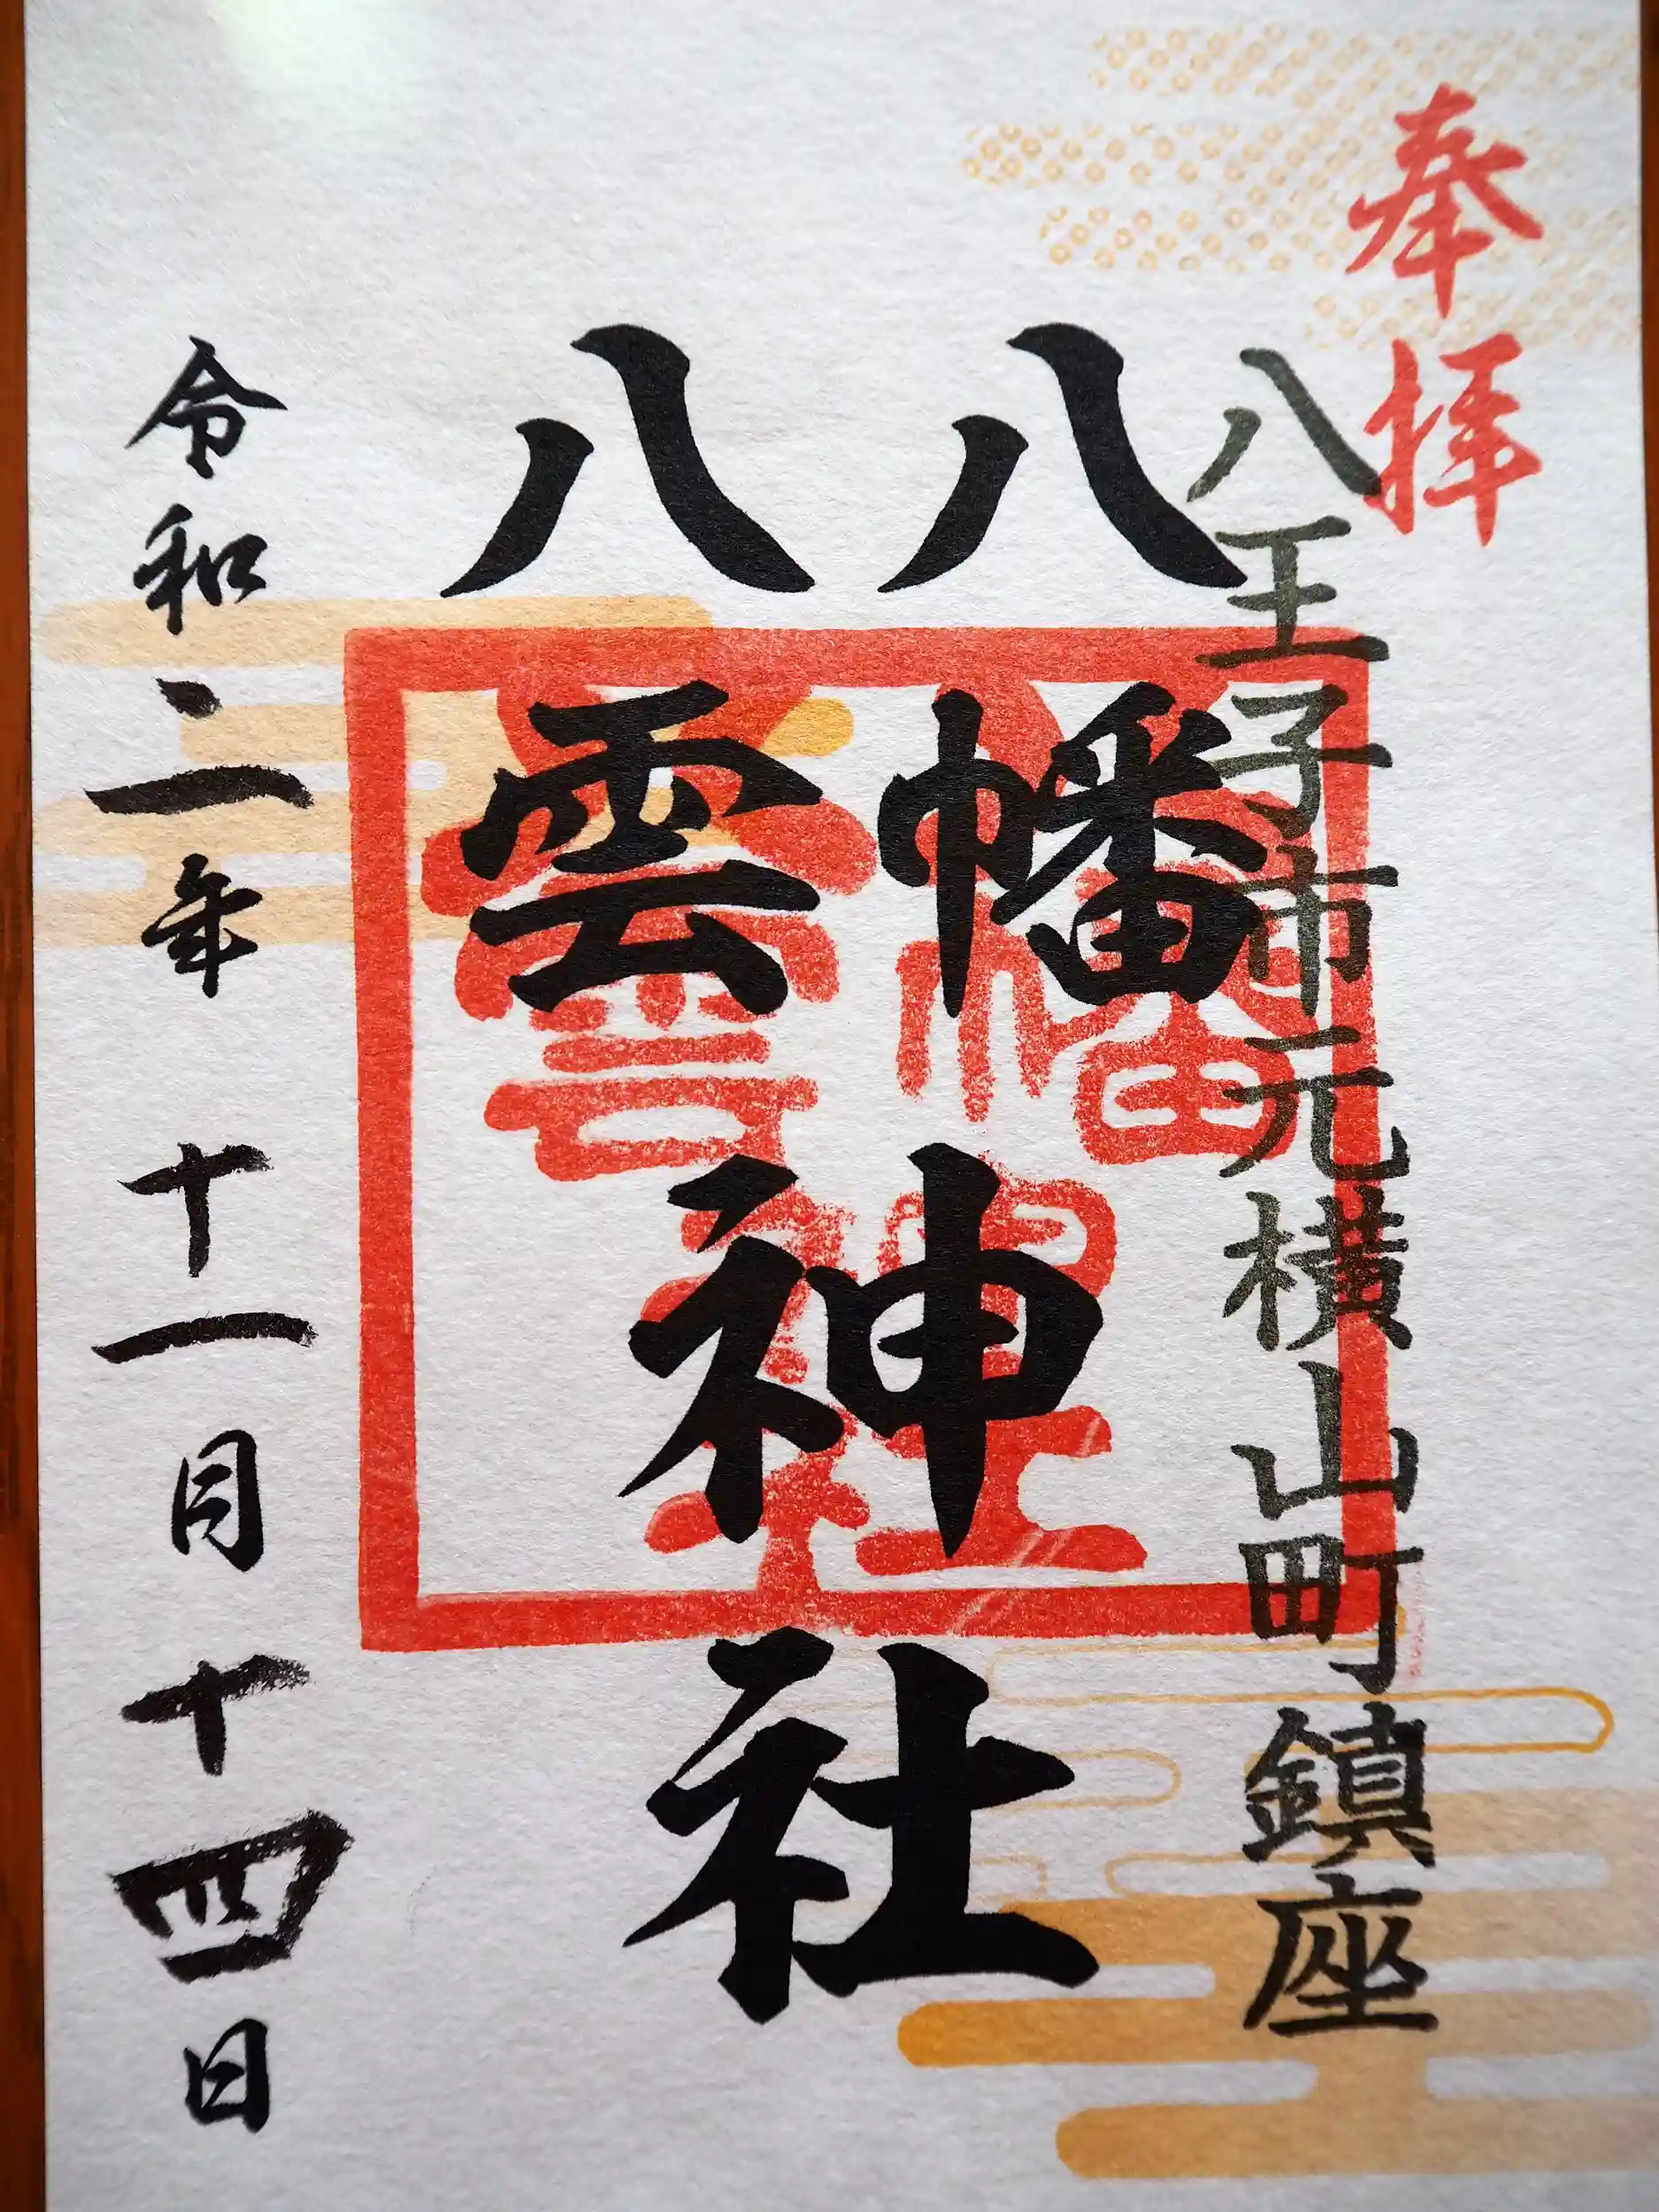 奉拝
八王子市元横山町鎮座
八幡
八雲
神社
令和二年十一月十四日